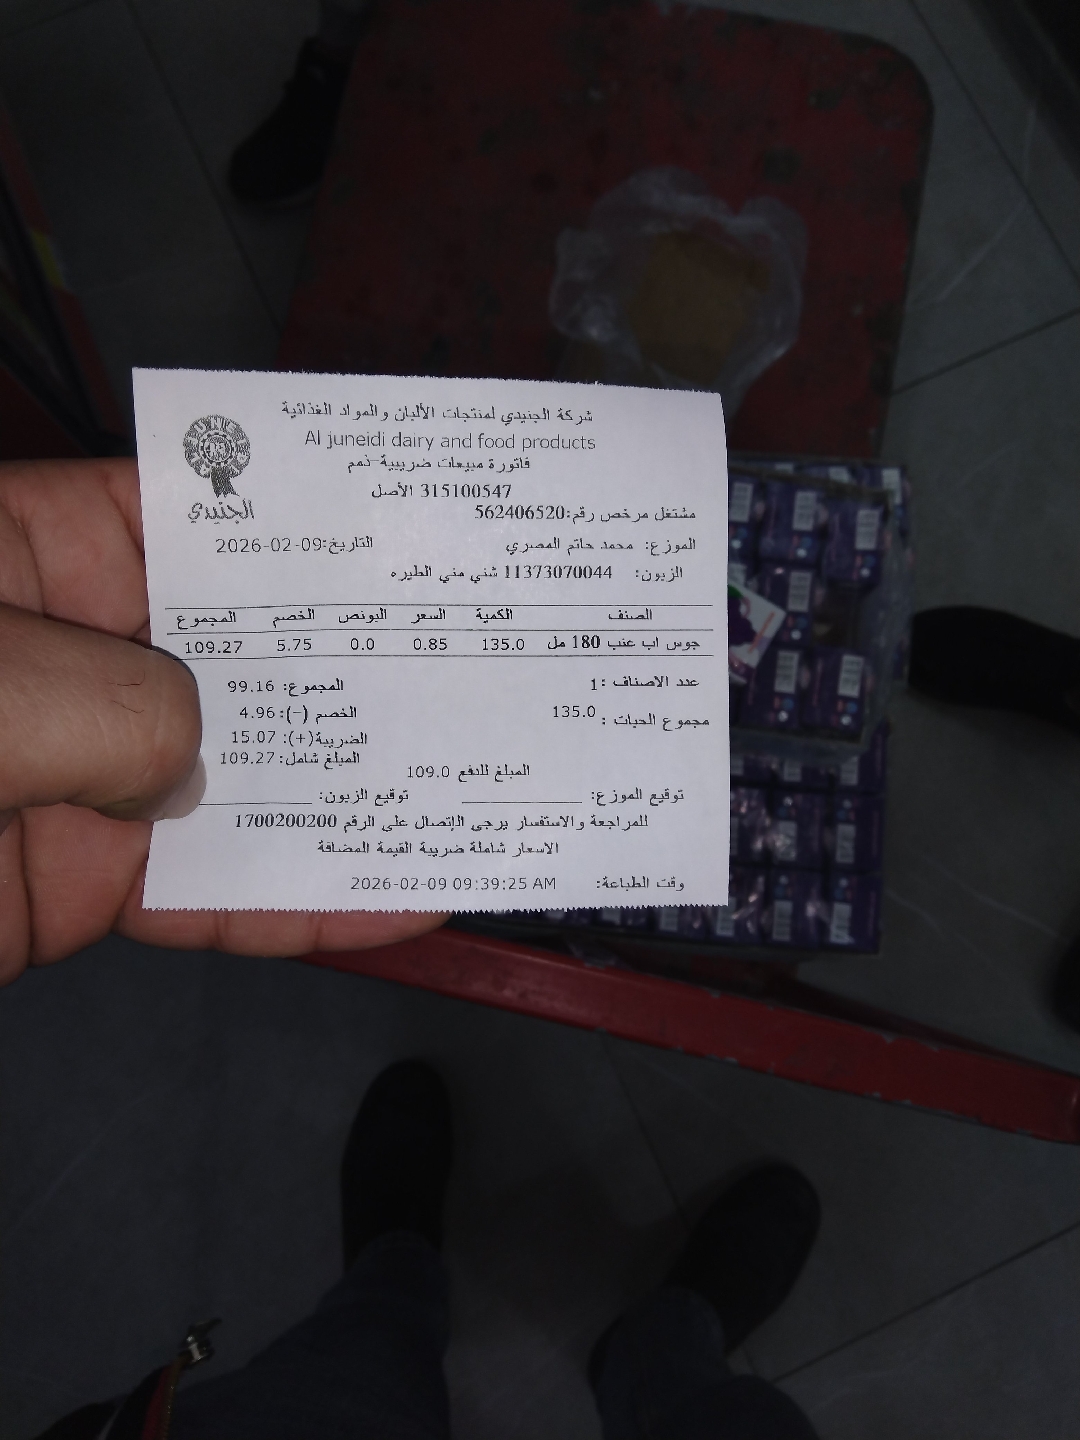 شركة الجنيدي لمنتجات الألبان والمواد الغذائية
Al juneidi dairy and food products
فاتورة مبيعات ضريبية-ذمم
315100547 الأصل
الجنيدي
مشتغل مرخص رقم:562406520
الموزع: محمد حاتم المصري التاريخ:2026-02-09
الزبون: 11373070044 شني مني الطيره
الصنف الكمية السعر البونص الخصم المجموع
جوس اب عنب 180 مل 135.0 0.85 0.0 5.75 109.27
عدد الاصناف :1 المجموع: 99.16
مجموع الحبات : 135.0 الخصم (-): 4.96
الضريبة(+): 15.07
المبلغ شامل: 109.27
المبلغ للدفع 109.0
توقيع الموزع: توقيع الزبون:
للمراجعة والاستفسار يرجى الإتصال على الرقم 1700200200
الاسعار شاملة ضريبة القيمة المضافة
وقت الطباعة: 2026-02-09 09:39:25 AM